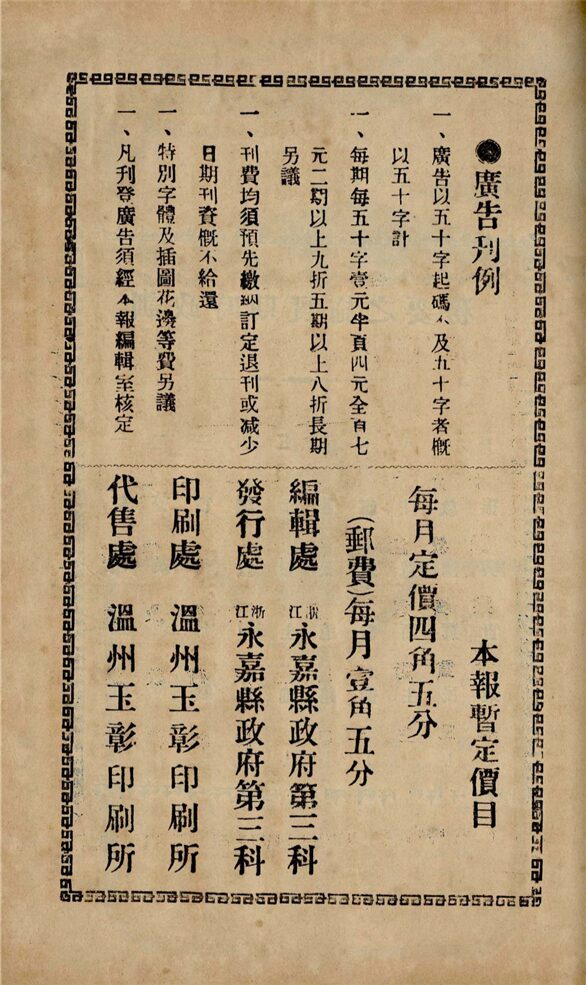 ●廣告刊例
一、廣告以五十字起碼不及五十字者概
以五十字計
一、每期每五十字壹元半頁四元全頁七
元二期以上九折五期以上八折長期
另議
一、刊費均須預先繳納訂定退刊或減少
日期刊資概不給還
一、特別字體及插圖花邊等費另議
一、凡刊登廣告須經本報編輯室核定
本報暫定價目
每月定價四角五分
(郵費)每月壹角五分
編輯處 浙江永嘉縣政府第三科
發行處 浙江永嘉縣政府第三科
印刷處 溫州玉彰印刷所
代售處 溫州玉彰印刷所